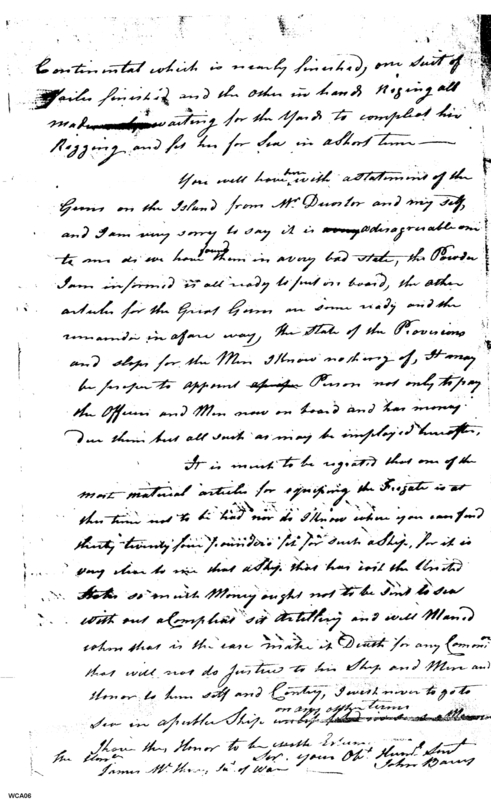 Continental which is nearly finished, one suit of
Sailes finished and the other in hand Riging all
made waiting for the Yards to compleat her
Rigging and fit her for Sea in a short time —
You will have here with a Statement of the
Guns on the Island from Mr and my self,
and I am very sorry to say it is a disagreeable one
to me as we have found them in a very bad state, the Powder
I am informed is all ready to put on board, the other
articles for the Great Guns are some ready and the
remainder in a fare way, the State of the Provisions
and slops for the Men I Know nothing of, It may
be proper to appoint Person not only to pay
the Officers and Men now on board and has money
due them but all such as may be employed hereafter,
It is much to be regreted that one of the
most material articles for equiping the Frigate is at
this time not to be had nor do I Know where you can find
thirty twenty four pounders fit for such a Ship, for it is
very clear to me that a Ship that has cost the United
States so much Money ought not to be Sent to sea
with out a Compleat set Artillery and well Maned
when that is the case make it Death for any Comm
that will not do Justice to his Ship and Men and
Honor to him self and Contry, I wish never to go to
sea in a publick Ship on any other terms
I have the Honor to be with Esteem
Sir your Obt Humbl Servt
The Honr
James McHenry Sec of War John Barry
WCA06